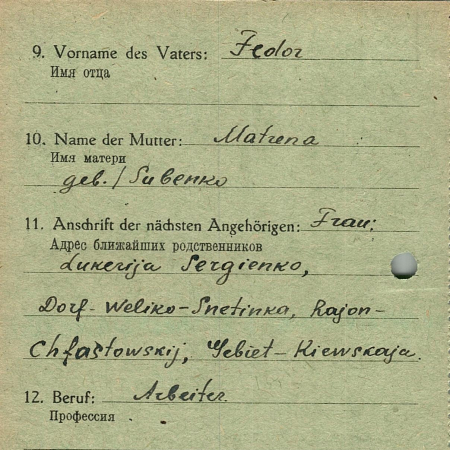 9. Vorname des Vaters: Fedor
Имя отца
10. Name der Mutter: Matrena
Имя матери
geb./Subenko
11. Anschrift der nächsten Angehörigen: Frau:
Адрес ближайших родственников
Lukerija Sergienko,
Dorf-Weliko-Snetinka, Rajon-
Chfastowskij, Gebiet-Kiewskaja.
12. Beruf: Arbeiter.
Профессия